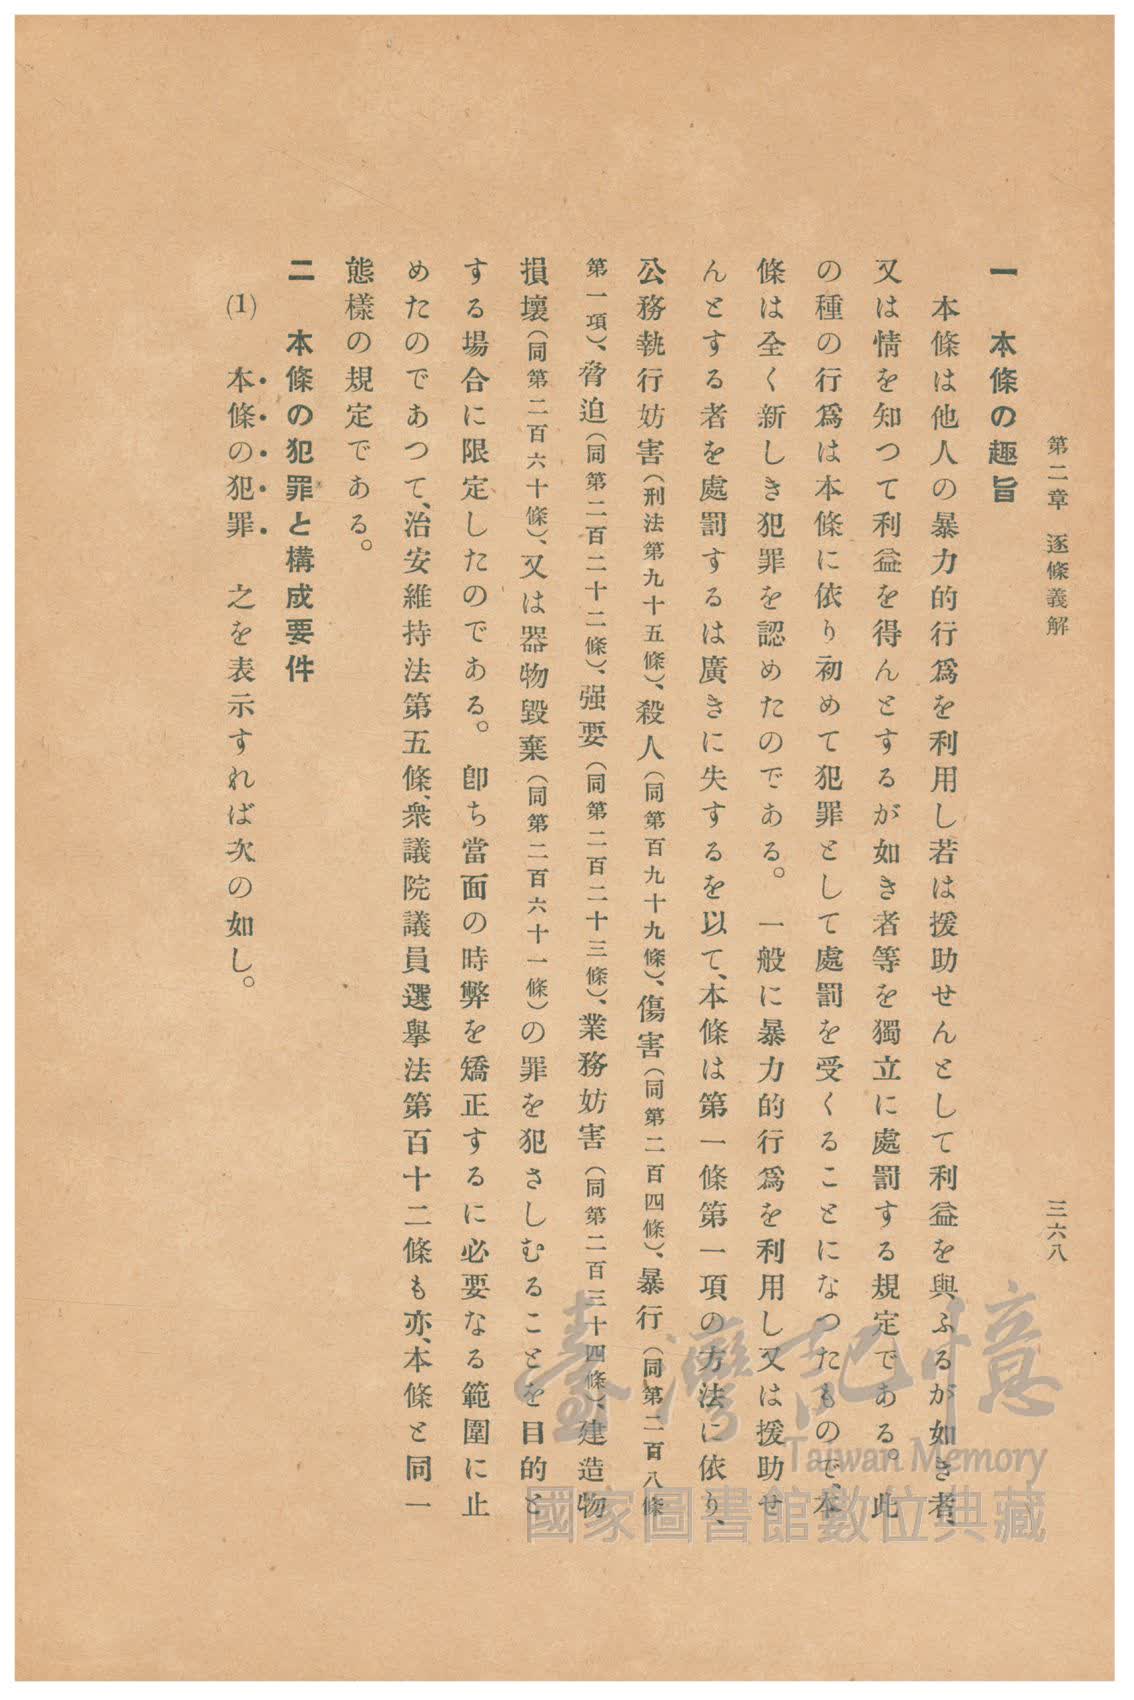 第二章　逐條義解　三六八
一　本條の趣旨
本條は他人の暴力的行爲を利用し若は援助せんとして利益を與ふるが如き者、
又は情を知つて利益を得んとするが如き者等を獨立に處罰する規定である。此
の種の行爲は本條に依り初めて犯罪として處罰を受くることになつたもので、本
條は全く新しき犯罪を認めたのである。一般に暴力的行爲を利用し又は援助せ
んとする者を處罰するは廣きに失するを以て、本條は第一條第一項の方法に依り、
公務執行妨害（刑法第九十五條）、殺人（同第百九十九條）、傷害（同第二百四條）、暴行（同第二百八條
第一項）、脅迫（同第二百二十二條）、强要（同第二百二十三條）、業務妨害（同第二百三十四條）、建造物
損壞（同第二百六十條）、又は器物毀棄（同第二百六十一條）の罪を犯さしむることを目的と
する場合に限定したのである。卽ち當面の時弊を矯正するに必要なる範圍に止
めたのであつて、治安維持法第五條、衆議院議員選擧法第百十二條も亦、本條と同一
態樣の規定である。
二　本條の犯罪と構成要件
(1)　本條の犯罪　之を表示すれば次の如し。
臺灣記憶
Taiwan Memory
國家圖書館數位典藏